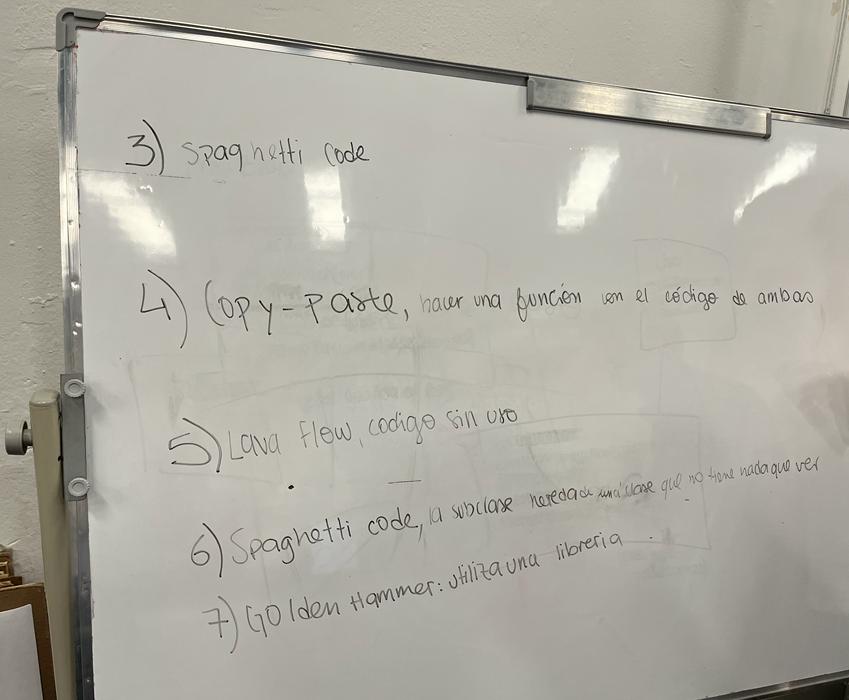 3) Spaghetti Code
4) Copy-Paste, hacer una función con el código de ambas
5) Lava Flow, codigo sin uso
6) Spaghetti code, la subclase hereda de una clase que no tiene nada que ver
7) GOlden Hammer: utiliza una libreria